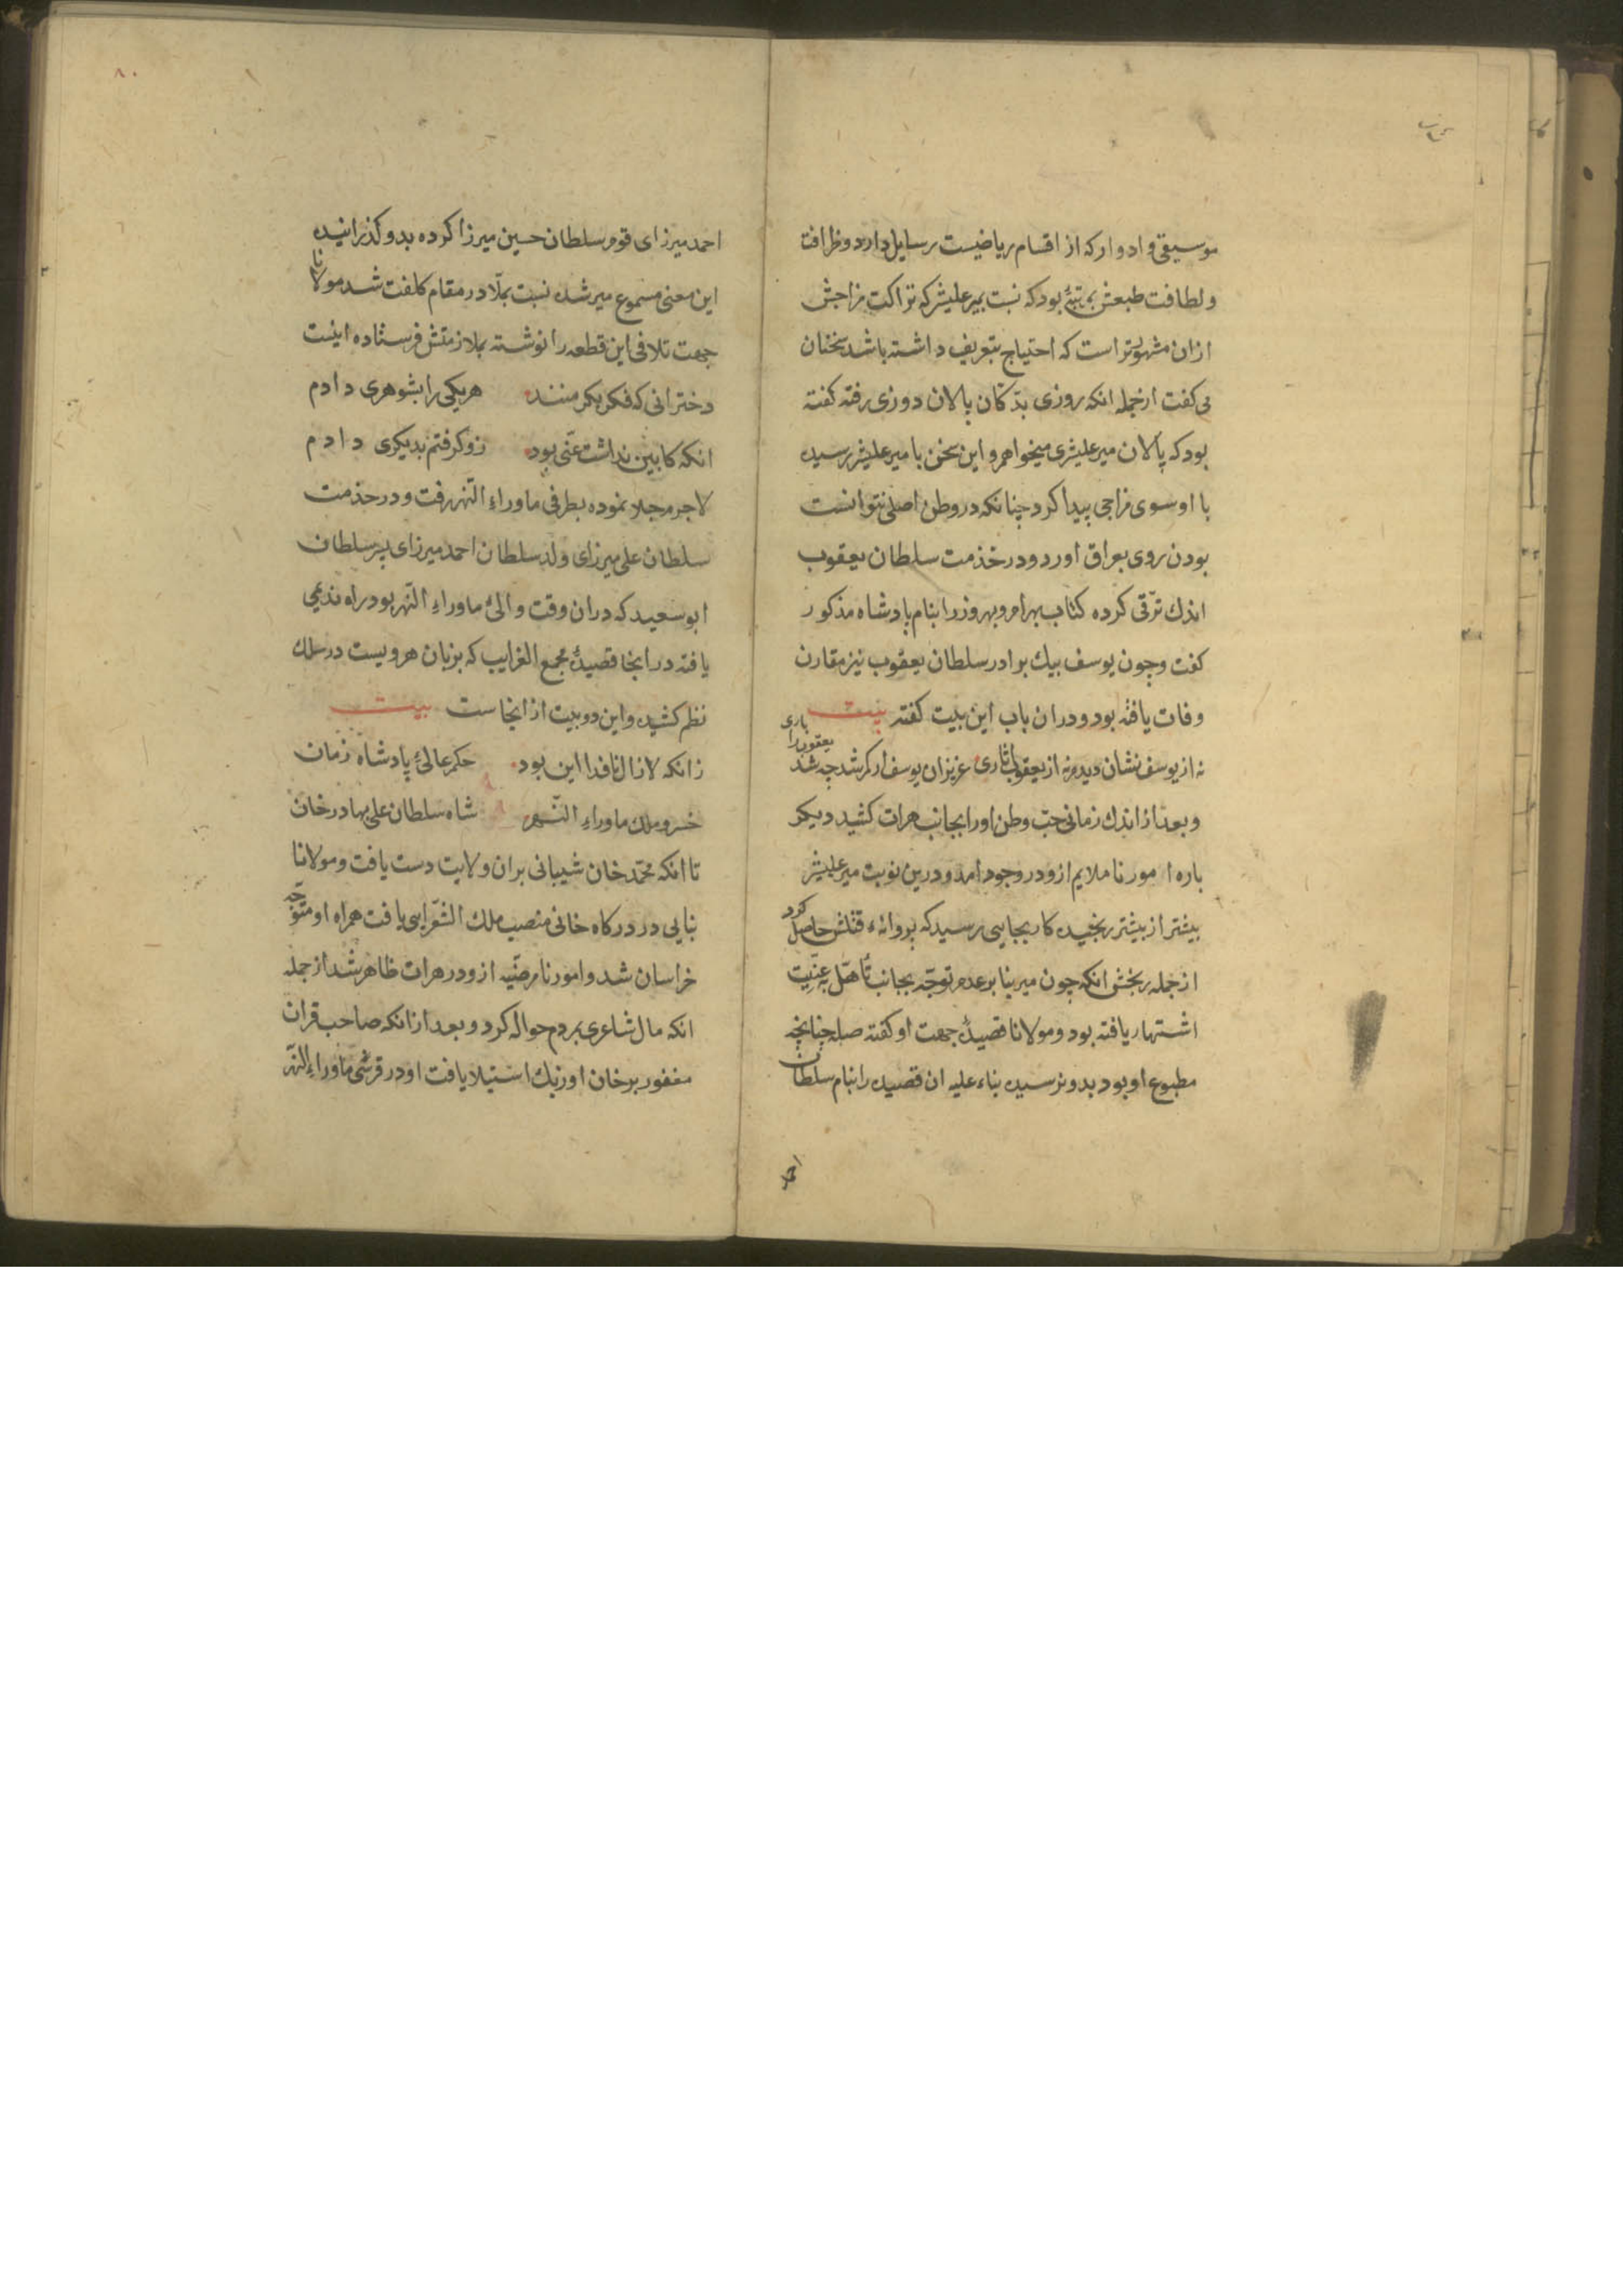 موسیقی و ادوار که از اقسام ریاضیست رسایل دارد و ظرافت
و لطافت طبعش بمرتبهٔ بود که نسبت بمیر علیشیر که نزاکت مزاجش
ازان مشهورتر است که احتیاج بتعریف داشته باشد سخنان
می کفت ازجمله انکه روزی بدکان پالان دوزی رفته کفته
بود که پالان میر علیشیری میخواهم و این سخن با میر علیشیر رسیده
با او سوی مزاجی پیدا کرد چنانکه در وطن اصلی نتوانست
بودن روی بعراق اورد و در خذمت سلطان یعقوب
اندك ترقی کرده کتاب بهرام و بهروز را بنام پادشاه مذکور
کفت و چون یوسف بیك برادر سلطان یعقوب نیز مقارن
وفات یافته بود و دران باب این بیت کفته بیت
نه از یوسف نشان دیدم نه از یعقوب اثاری عزیزان یوسف ار کم شد چه شد یعقوب را باری
و بعد از اندك زمانی حب وطن او را بجانب هرات کشید دیکر
باره امور ناملایم ازو در وجود امد و درین نوبت میر علیشیر
بیشتر از پیشتر رنجیده کار بجایی رسید که پروانهٔ قتلش حاصل کرد
ازجمله رنجش انکه چون میر بنا بر عدم توجه بجانب تأهل به عنیت
اشتهار یافته بود و مولانا قصیدهٔ جهت او کفته صله چنانچه
مطبوع او بود بدو نرسیده بناء علیه ان قصیده را بنام سلطان
احمد
۸۰
احمد میرزای قوم سلطان حسین میرزا کرده بدو کذرانیده
این معنی مسموع میر شده نسبت بملا در مقام کلفت شد مولانا
جهت تلافی این قطعه را نوشته بملازمتش فرستاده اینست
دخترانی که فکر بکر منند هر یکی را بشوهری دادم
انکه کابین نداشت عنی بود زو کرفتم بدیکری دادم
لاجرم جلا نموده بطرفی ماوراء النهر رفت و در خذمت
سلطان علی میرزای ولد سلطان احمد میرزای پسر سلطان
ابو سعید که دران وقت والئ ماوراء النهر بود راه ندیمی
یافته در انجا قصیدهٔ مجمع الغرایب که بزبان هرویست در سلك
نظم کشیده و این دو بیت از انجاست بیت
زانکه لازال نافدا این بود حکم عالئ پادشاه زمان
خسرو ملك ماوراء النهر شاه سلطان علی بهادر خان
تا انکه محمد خان شیبانی بران ولایت دست یافت و مولانا
بنایی در درکاه خانی منصب ملك الشعرایی یافت همراه او متوجه
خراسان شد و امور نامرضیه ازو در هرات ظاهر شد ازجمله
انکه مال شاعری بردم حواله کرد و بعد از انکه صاحب قران
مغفور بر خان اوزبك استیلا یافت او در قرشی ماوراء النهر